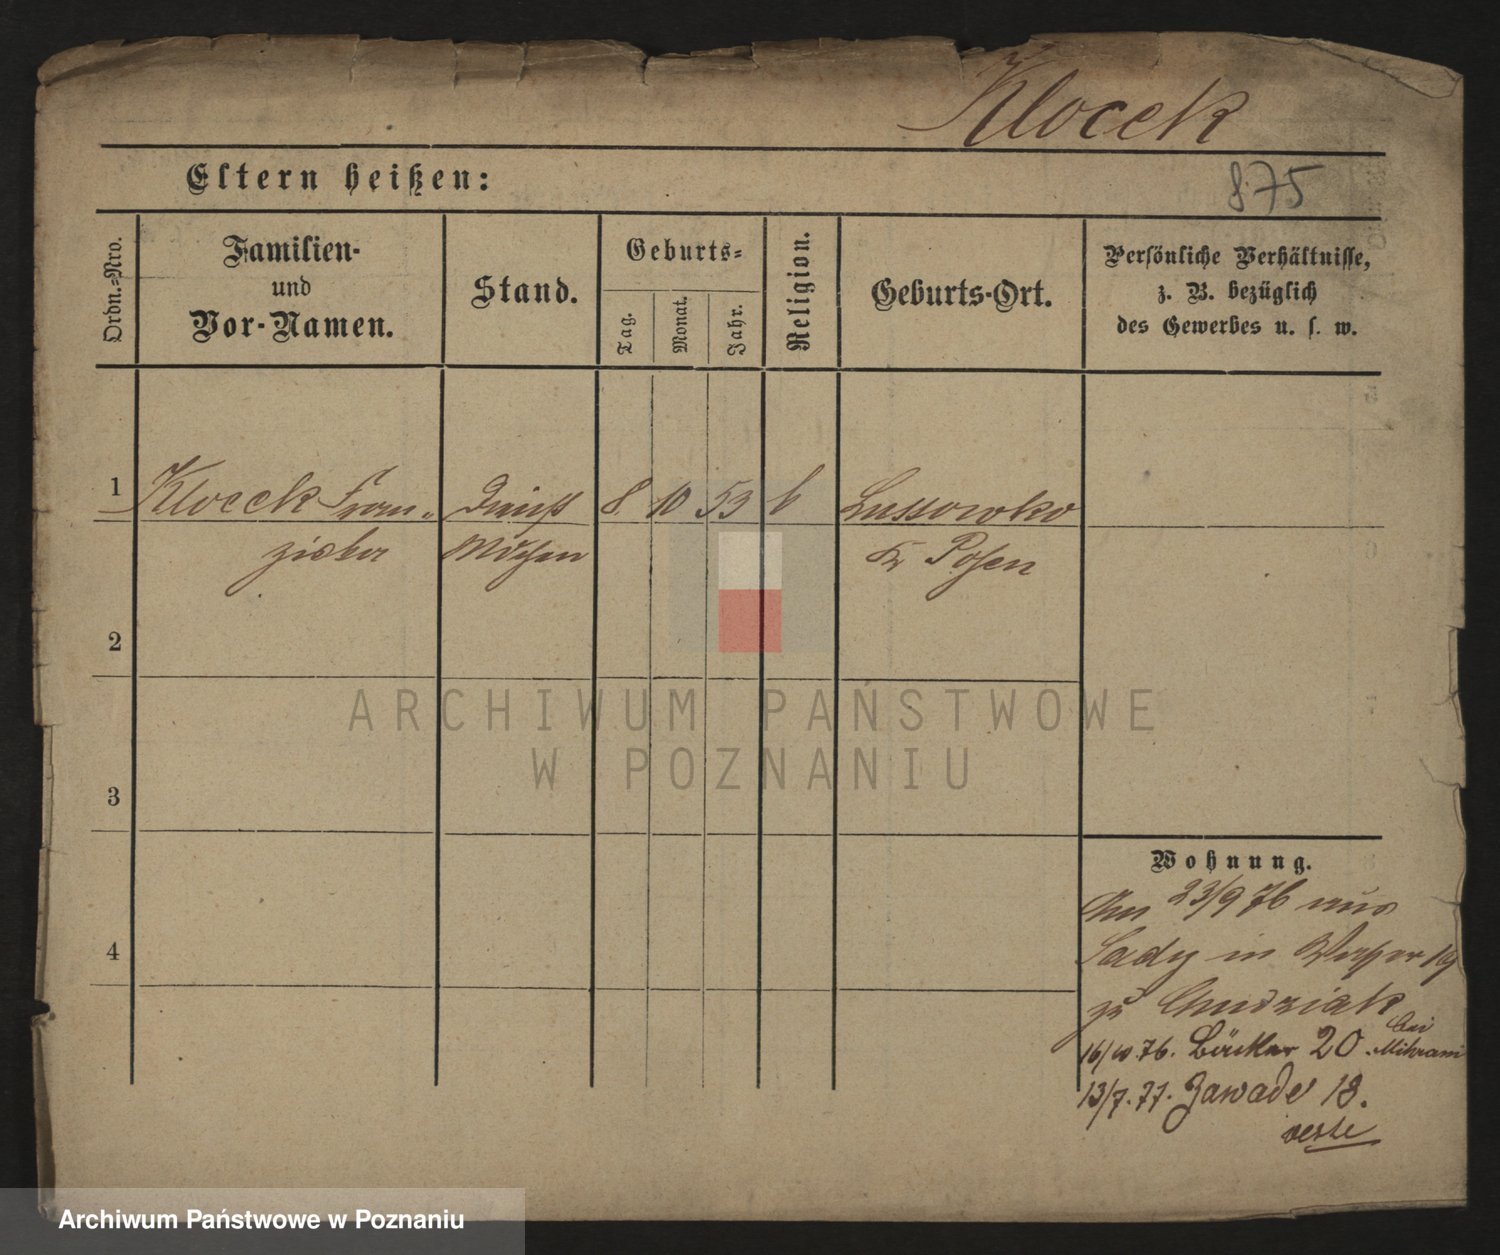 Klocek
Eltern heißen:
875
Ordn.-Nro.
Familien-
und
Vor-Namen.
Stand.
Geburts-
Tag.
Monat.
Jahr.
Religion.
Geburts-Ort.
Persönliche Verhältnisse,
z. B. bezüglich
des Gewerbes u. s. w.
1 Klocek Fran- 8 10 53 k Lussowko
ziska Kr Posen
2
3
4
Wohnung.
23/9 76 aus
Sady in 
zu
16/10.76. Bäcker 20. bei
13/7.77. Zawade 18.
ARCHIWUM PAŃSTWOWE
W POZNANIU
Archiwum Państwowe w Poznaniu